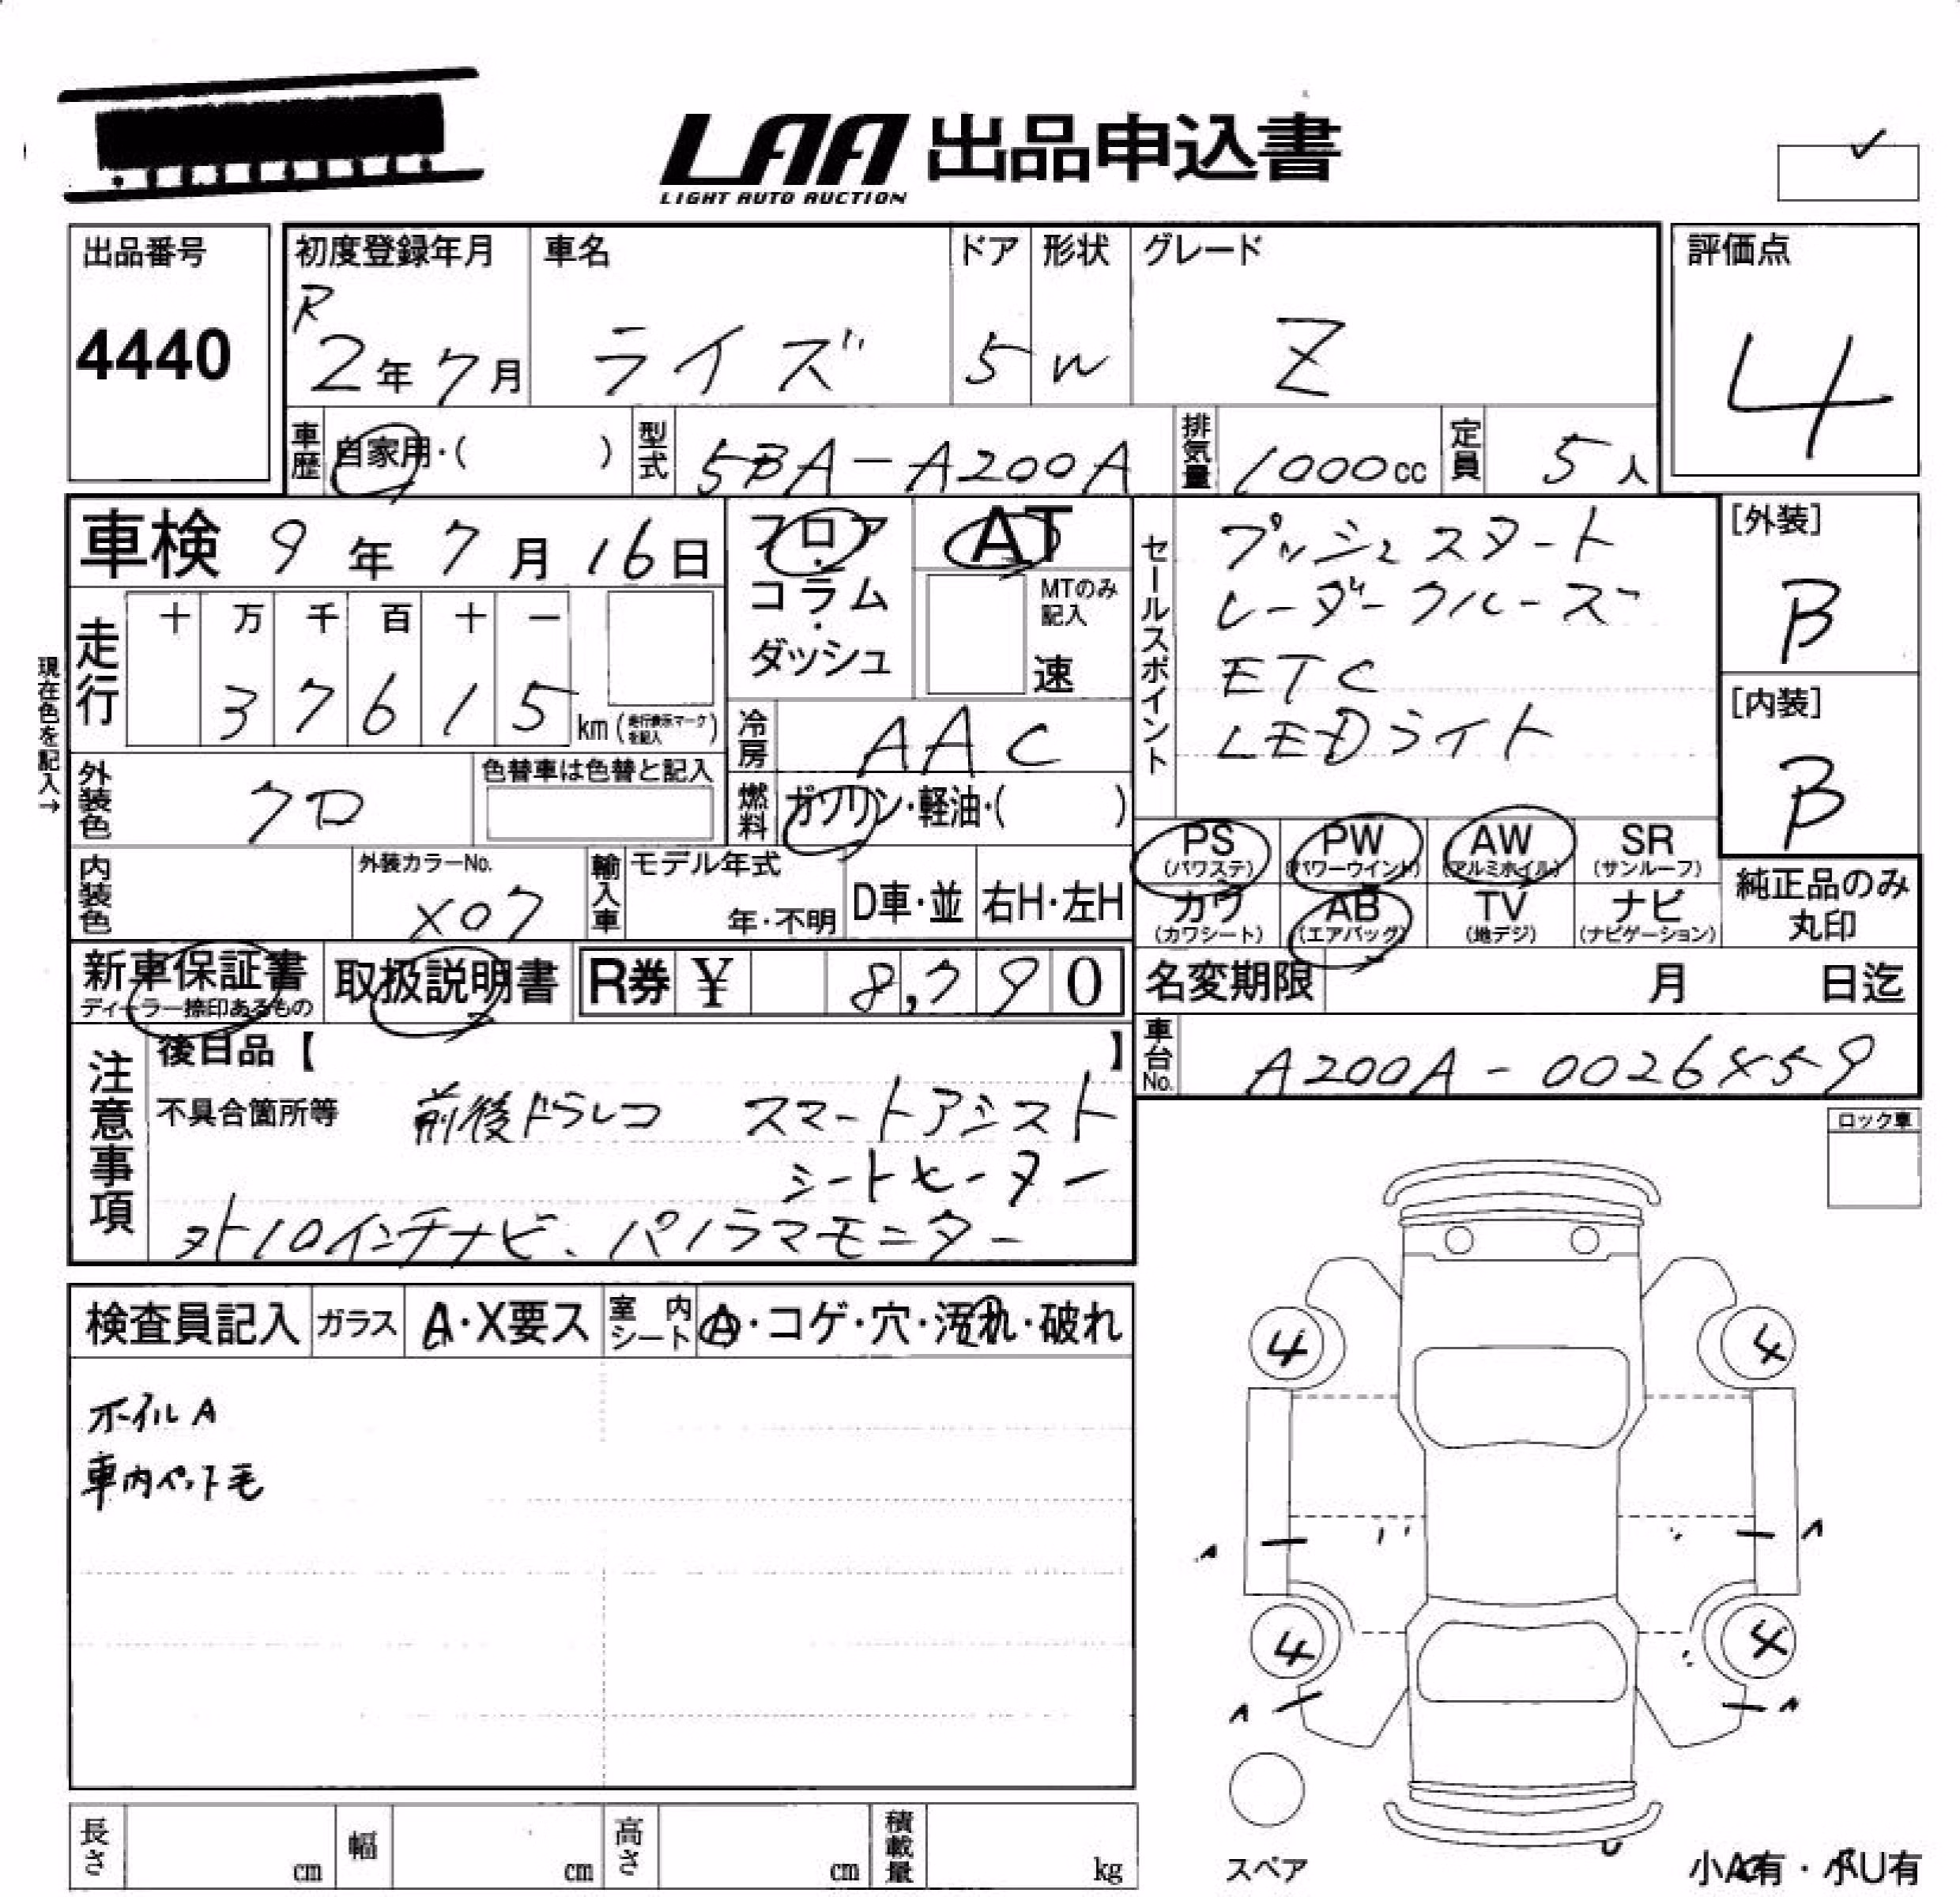 LAA 出品申込書
LIGHT AUTO AUCTION
✓
出品番号
4440
初度登録年月
R
2年7月
車名
ライズ
ドア
5
形状
W
グレード
Z
評価点
4
車歴
自家用・( )
型式
5BA-A200A
排気量
1000cc
定員
5人
車検 9年7月16日
フロア・コラム・ダッシュ
AT
MTのみ記入
速
セールスポイント
プッシュスタート
レーダークルーズ
ETC
LEDライト
[外装]
B
[内装]
B
現在色を記入→
走行
十 万 千 百 十 一
3 7 6 1 5 km (走行表示マークを記入)
冷房
AAC
外装色
クロ
色替車は色替と記入
燃料
ガソリン・軽油・( )
PS (パワステ)
PW (パワーウインド)
AW (アルミホイル)
SR (サンルーフ)
カワ (カワシート)
AB (エアバッグ)
TV (地デジ)
ナビ (ナビゲーション)
純正品のみ丸印
内装色
外装カラーNo.
X07
輸入車
モデル年式
年・不明
D車・並
右H・左H
新車保証書
ディーラー捺印あるもの
取扱説明書
R券 ¥ 8,790
名変期限 月 日迄
車台No.
A200A-0026859
注意事項
後日品【 】
不具合箇所等
前後ドラレコ スマートアシスト
シートヒーター
外10インチナビ、パノラマモニター
ロック車
検査員記入
ガラス
A・X要ス
室内シート
A・コゲ・穴・汚れ・破れ
ホイルA
車内ペット毛
4 4
A A
4 4
A A
スペア
長さ cm
幅 cm
高さ cm
積載量 kg
小AC有・小FU有